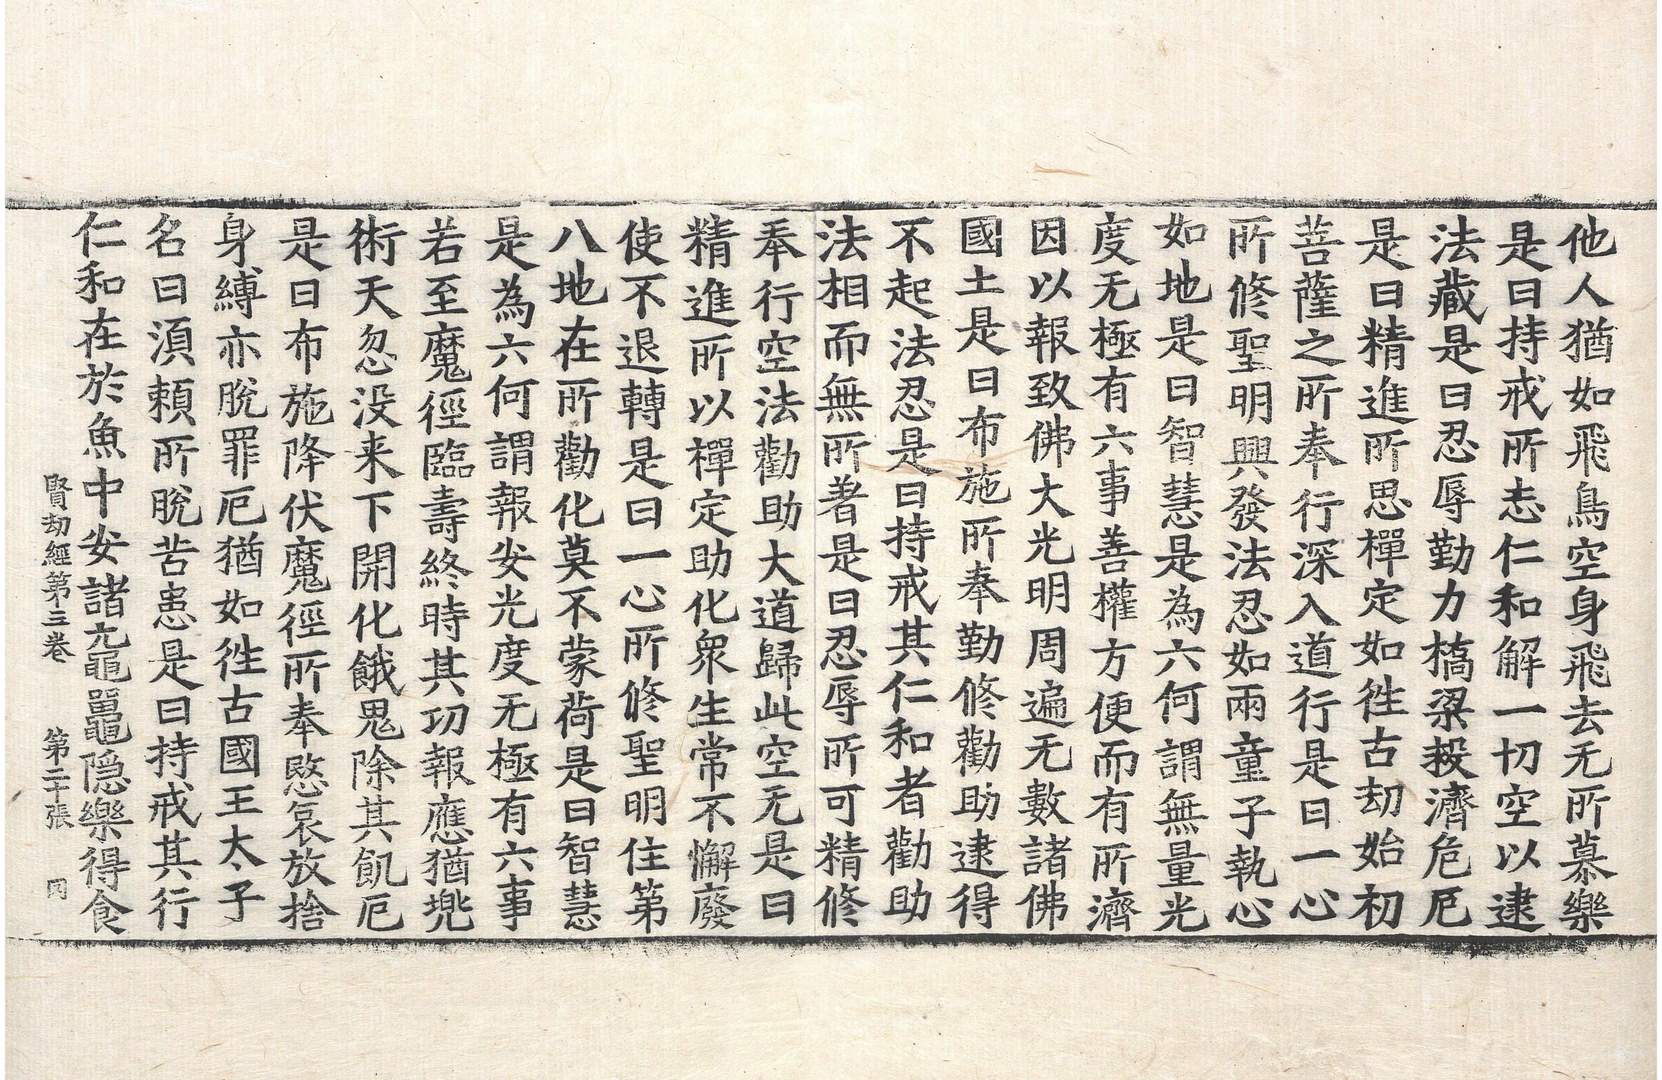 他人猶如飛鳥空身飛去无所慕樂
是曰持戒所志仁和解一切空以逮
法藏是曰忍辱勤力橋梁救濟危厄
是曰精進所思禪定如徃古劫始初
菩薩之所奉行深入道行是曰一心
所修聖明興發法忍如兩童子執心
如地是曰智慧是為六何謂無量光
度无極有六事善權方便而有所濟
因以報致佛大光明周遍无數諸佛
國土是曰布施所奉勤修勸助逮得
不起法忍是曰持戒其仁和者勸助
法相而無所著是曰忍辱所可精修
奉行空法勸助大道歸此空无是曰
精進所以禪定助化衆生常不懈廢
使不退轉是曰一心所修聖明住第
八地在所勸化莫不蒙荷是曰智慧
是為六何謂報安光度无極有六事
若至魔徑臨壽終時其功報應猶兠
術天忽没来下開化餓鬼除其飢厄
是曰布施降伏魔徑所奉愍哀放捨
身縛亦脫罪厄猶如徃古國王太子
名曰湏賴所脫苦患是曰持戒其行
仁和在於魚中安諸黿鼉隐樂得食
賢劫經第三卷 第二十張 罔